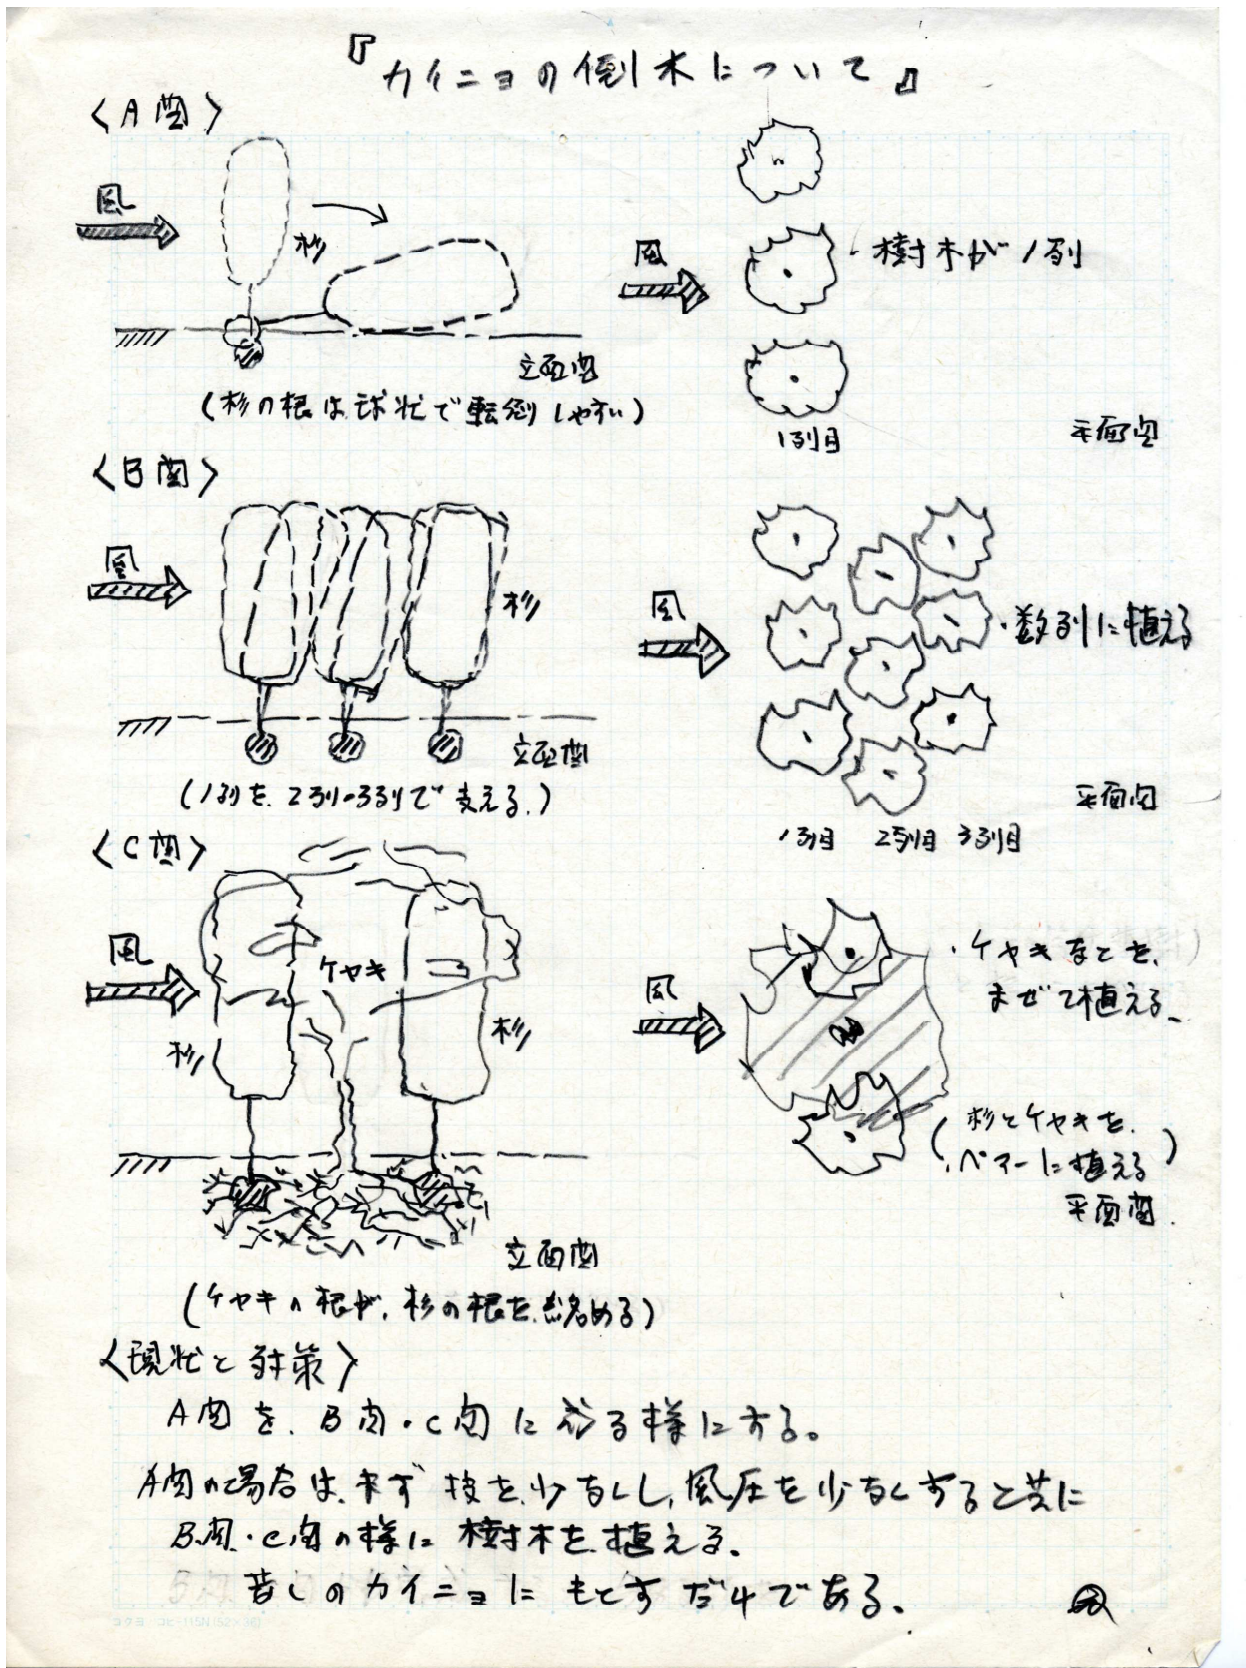 『カイニョの倒木について』
〈A図〉
風
杉
立面図
(杉の根は球状で転倒しやすい)
風
・樹木が1列
1列目
平面図
〈B図〉
風
杉
立面図
(1列を、2列・3列で支える。)
風
・数列に植える
平面図
1列目 2列目 3列目
〈C図〉
風
ケヤキ
杉
杉
立面図
(ケヤキの根が、杉の根を、絡める)
風
・ケヤキなどを、
まぜて植える。
(杉とケヤキを、
ペアーに植える)
平面図
〈現状と対策〉
A図を、B図・C図になる様にする。
A図の場合は、まず枝を少なくし、風圧を少なくすると共に
B図・C図の様に樹木を植える。
昔しのカイニョにもどすだけである。